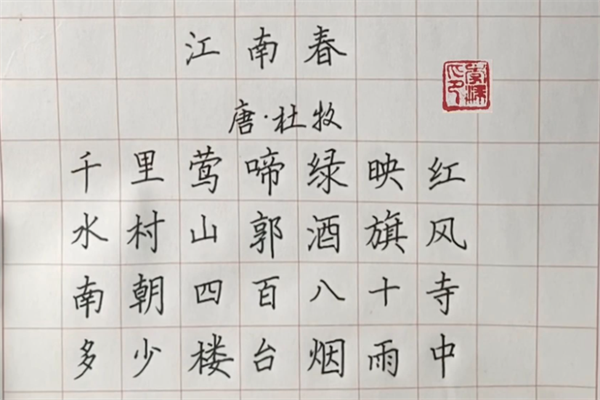 江南春
唐·杜牧
千里莺啼绿映红
水村山郭酒旗风
南朝四百八十寺
多少楼台烟雨中